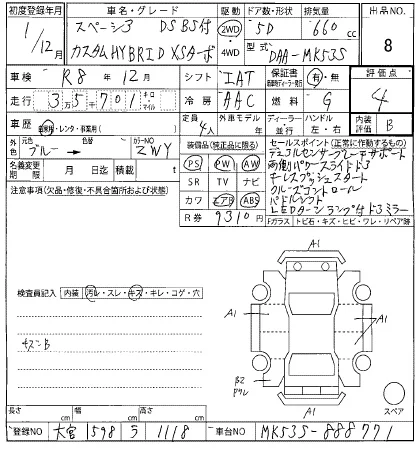 初度登録年月 車名・グレード 駆動 ドア数・形状 排気量 出品NO.
1/12月 スペーシア DS BS付 2WD 5D 660cc 8
カスタムHYBRID XSターボ 4WD 型式 DAA-MK53S
車検 R8年12月 シフト IAT 保証書 有・無 評価点
走行 35701 キロ マイル 冷房 AAC 燃料 G 4
車歴 自家用・レンタ・事業用( ) 定員 4人 外車モデル 年 ディーラー 並行 ハンドル 左・右 内装評価 B
色 元色 ブルー← 色替 カラーNO ZWY 装備品(純正品に限る) セールスポイント(正常に作動するもの)
名義変更期限 月 日迄 積載 t PS PW AW デュアルセンサーブレーキサポート
注意事項(欠品・修復・不具合箇所および状態) SR TV ナビ 両側パワースライドドア
カワ エアB ABS キーレスプッシュスタート
R券 9310円 クルーズコントロール
パドルシフト
LEDターンランプ付ドアミラー
Fガラス トビ石・キズ・ヒビ・ワレ・リペア跡
検査員記入 内装 汚レ・スレ・キズ・キレ・コゲ・穴
キズB
A1
A1
A1
B2
A1
長さ cm 幅 cm 高さ cm
登録NO 大宮 1598 ラ 1118 車台NO MK53S-888771